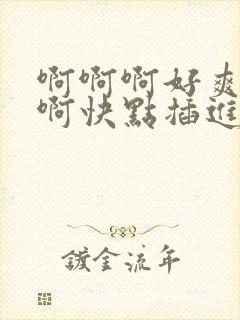 啊啊啊好爽
啊快點插進
鍍金流年